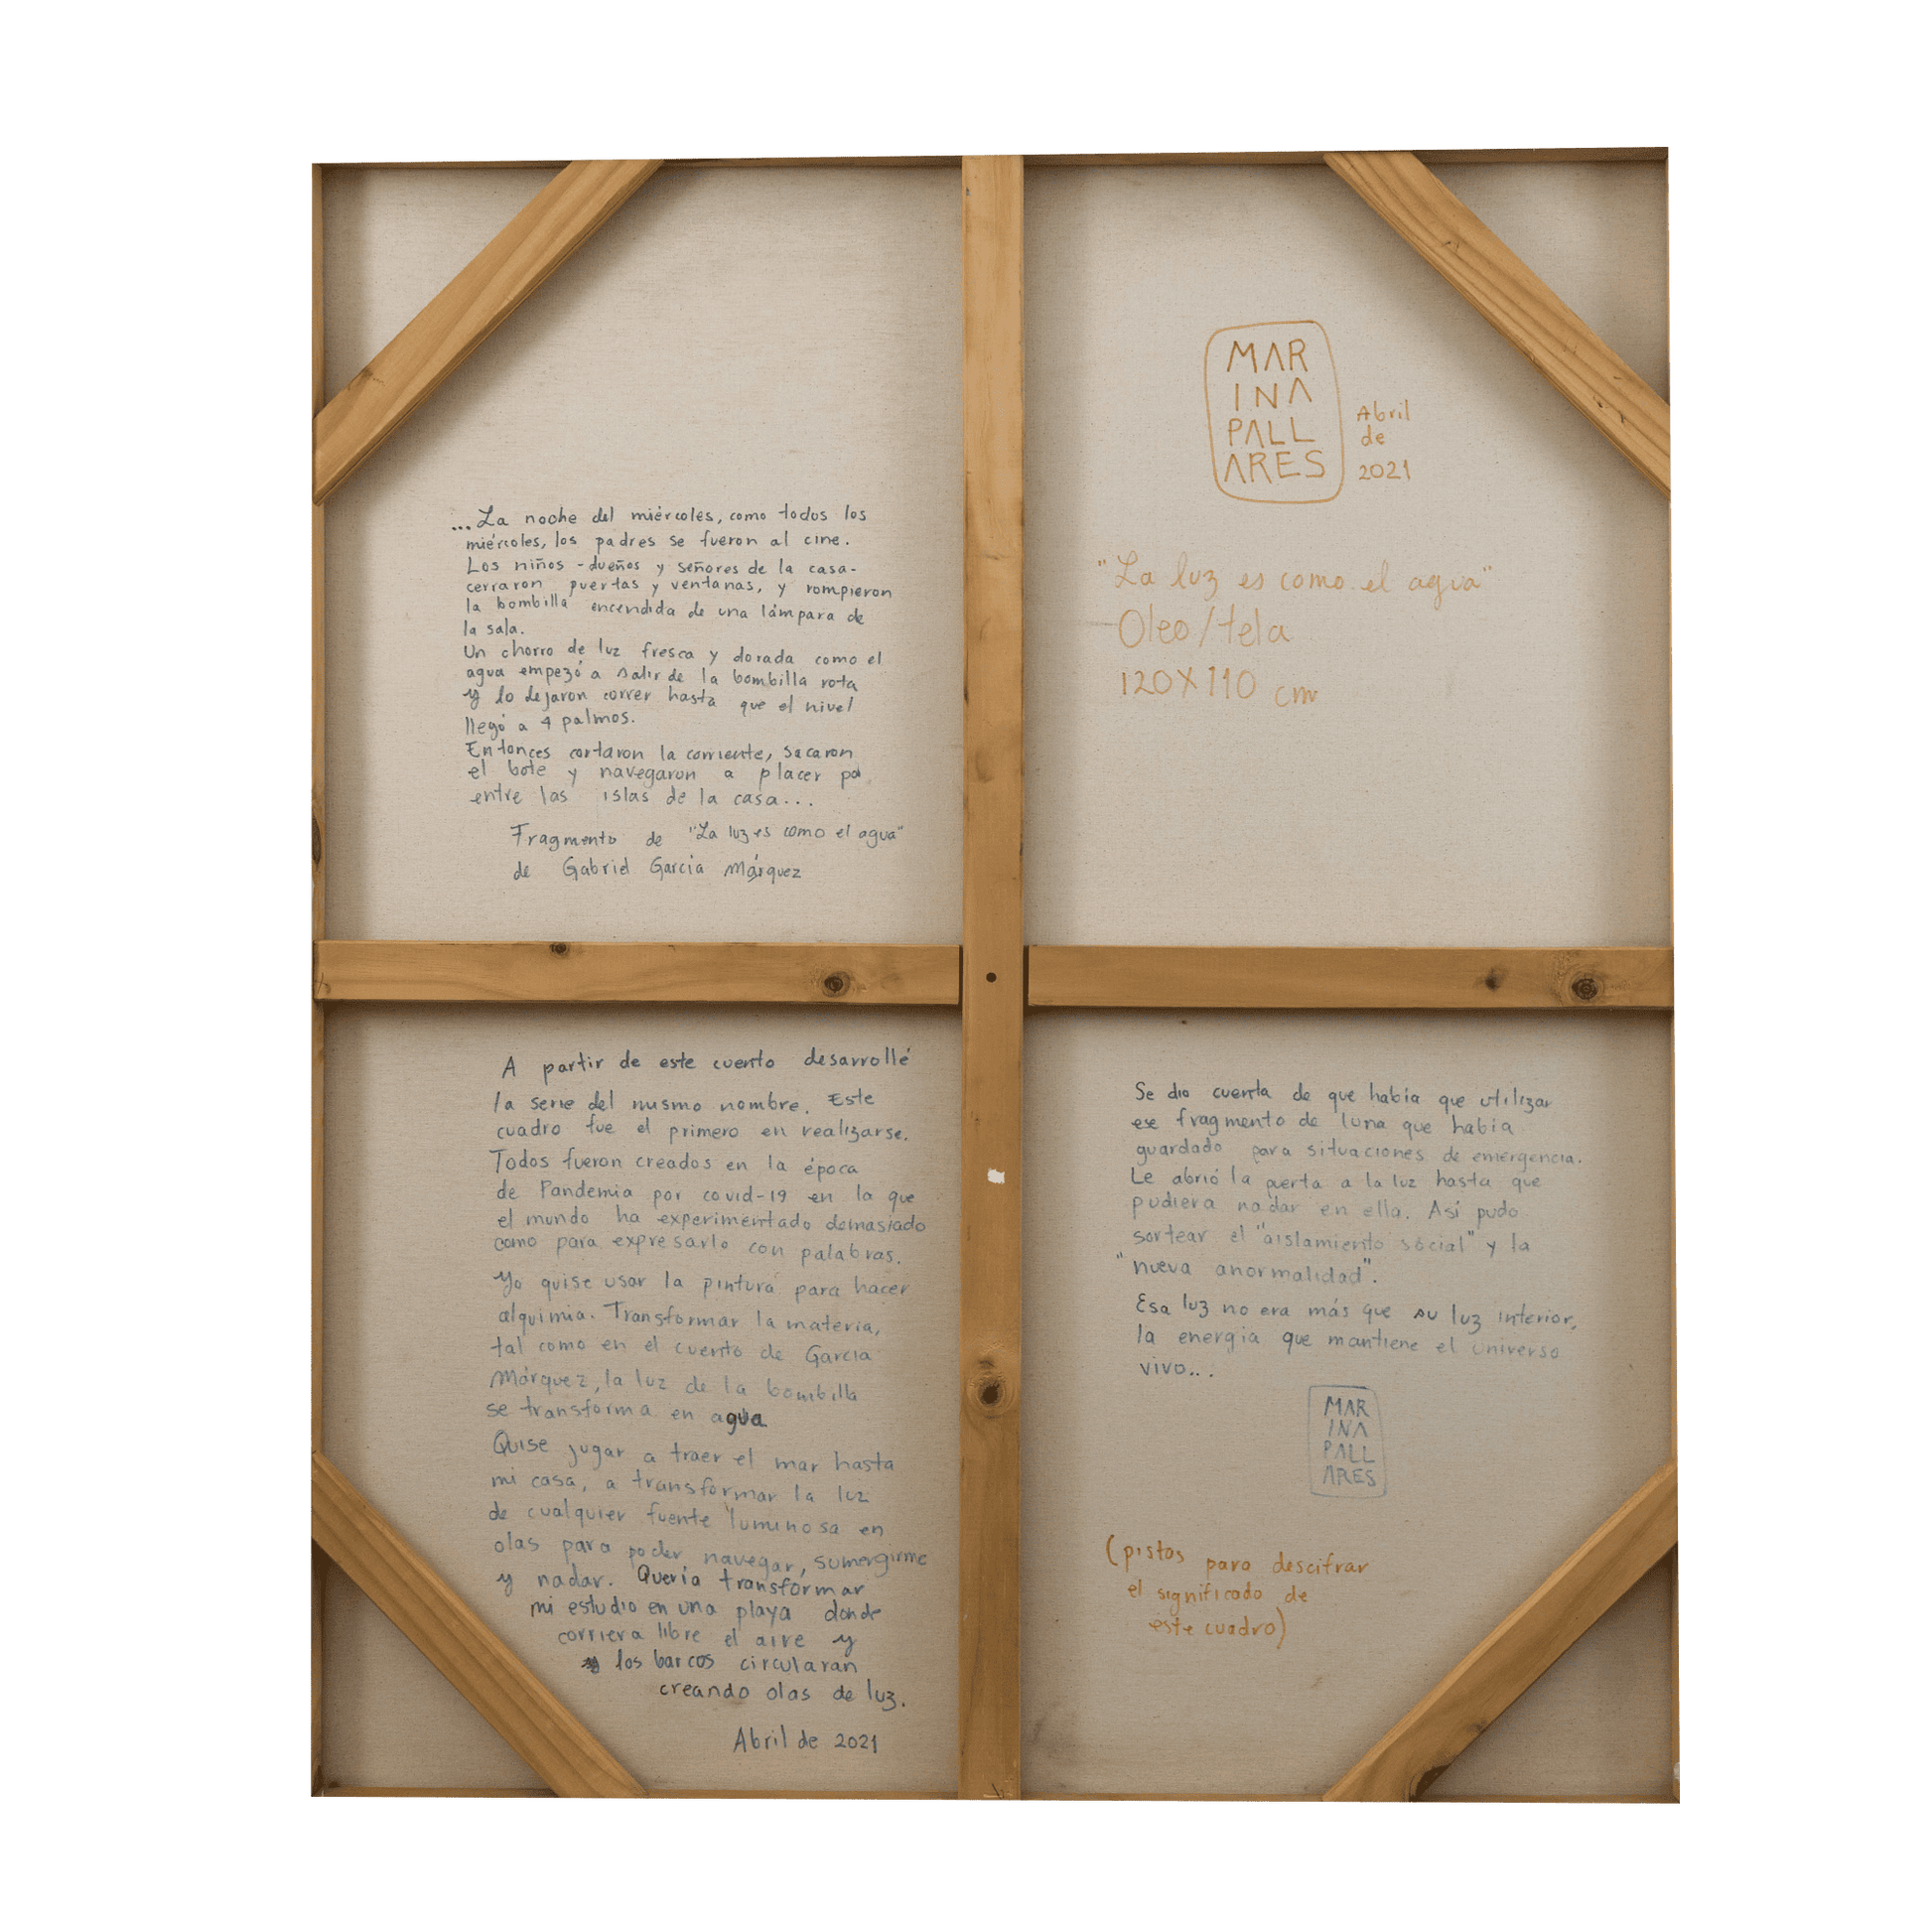 ...La noche del miércoles, como todos los
miércoles, los padres se fueron al cine.
Los niños -dueños y señores de la casa-
cerraron puertas y ventanas, y rompieron
la bombilla encendida de una lámpara de
la sala.
Un chorro de luz fresca y dorada como el
agua empezó a salir de la bombilla rota
y lo dejaron correr hasta que el nivel
llegó a 4 palmos.
Entonces cortaron la corriente, sacaron
el bote y navegaron a placer po
entre las islas de la casa...
Fragmento de "La luz es como el agua"
de Gabriel García Márquez
MAR
INA
PALL
ARES
Abril
de
2021
"La luz es como el agua"
Oleo/tela
120X110 cm
A partir de este cuento desarrollé
la serie del mismo nombre. Este
cuadro fue el primero en realizarse.
Todos fueron creados en la época
de Pandemia por covid-19 en la que
el mundo ha experimentado demasiado
como para expresarlo con palabras.
Yo quise usar la pintura para hacer
alquimia. Transformar la materia,
tal como en el cuento de García
Márquez, la luz de la bombilla
se transforma en agua
Quise jugar a traer el mar hasta
mi casa, a transformar la luz
de cualquier fuente luminosa en
olas para poder navegar, sumergirme
y nadar. Quería transformar
mi estudio en una playa donde
corriera libre el aire y
los barcos circularan
creando olas de luz.
Abril de 2021
Se dio cuenta de que había que utilizar
ese fragmento de luna que había
guardado para situaciones de emergencia.
Le abrió la puerta a la luz hasta que
pudiera nadar en ella. Así pudo
sortear el "aislamiento social" y la
"nueva anormalidad".
Esa luz no era más que su luz interior,
la energía que mantiene el Universo
vivo...
MAR
INA
PALL
ARES
(pistas para descifrar
el significado de
este cuadro)